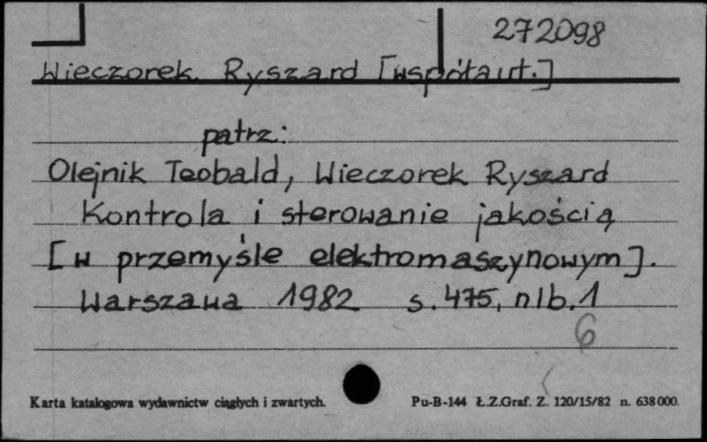 272098
Wieczorek Ryszard [współaut.]
patrz:
Olejnik Teobald, Wieczorek Ryszard
Kontrola i sterowanie jakością
[w przemyśle elektromaszynowym].
Warszawa 1982 s. 475, nlb. 1
6
Karta katalogowa wydawnictw ciągłych i zwartych. Pu-B-144 Ł.Z.Graf. Z. 120/15/82 n. 638000.